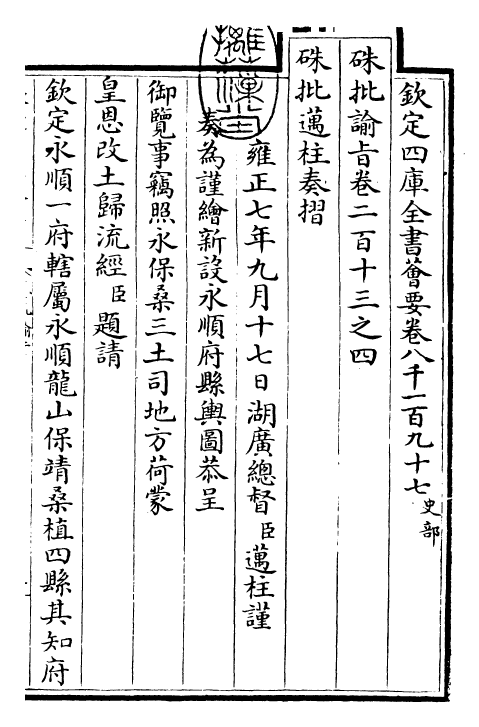 欽定四庫全書薈要卷八千一百九十七史部
硃批諭旨卷二百十三之四
硃批邁柱奏摺
雍正七年九月十七日湖廣總督臣邁柱謹
奏為謹繪新設永順府縣輿圖恭呈
御覽事竊照永保桑三土司地方荷蒙
皇恩改土歸流經臣題請
欽定永順一府轄屬永順龍山保靖桑植四縣其知府